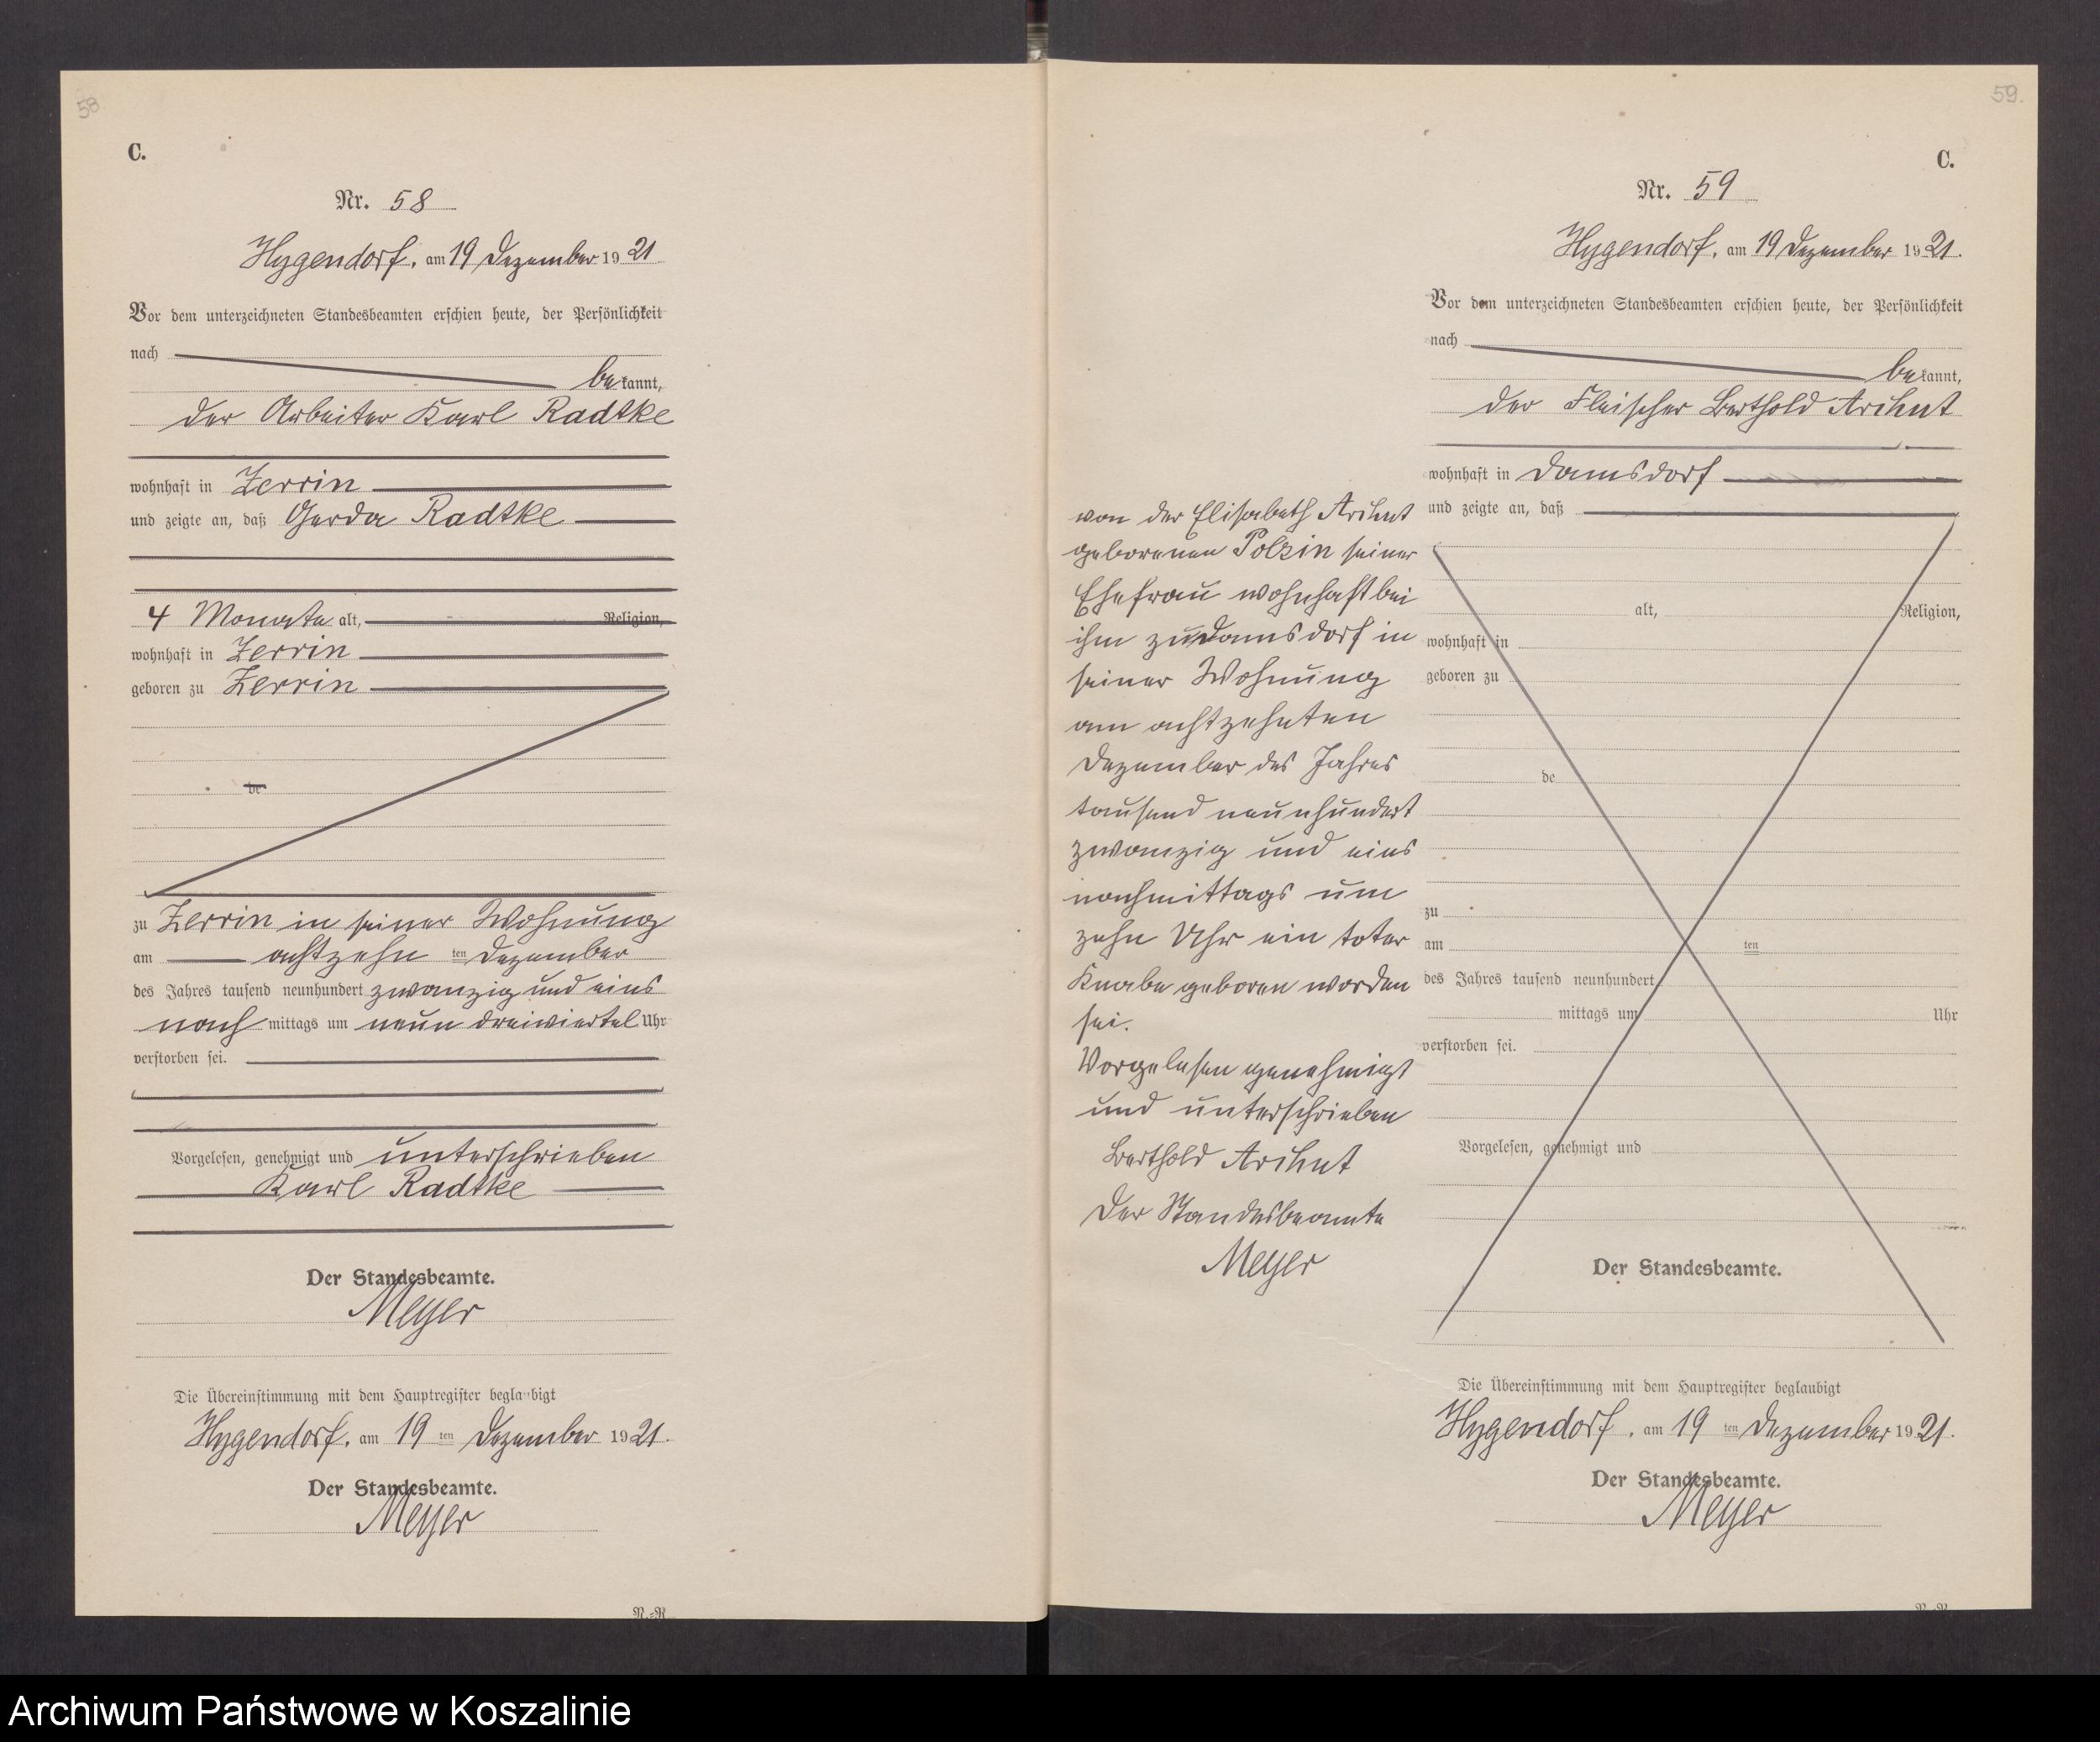 58
C.
Nr. 58
Hygendorf, am 19 Dezember 1921
Vor dem unterzeichneten Standesbeamten erschien heute, der Persönlichkeit
nach
bekannt,
der Arbeiter Karl Radtke
wohnhaft in Zerrin
und zeigte an, daß Gerda Radtke
4 Monate alt, Religion,
wohnhaft in Zerrin
geboren zu Zerrin
de
zu Zerrin in seiner Wohnung
am achtzehn ten Dezember
des Jahres tausend neunhundert zwanzig und eins
nach mittags um neun dreiviertel Uhr
verstorben sei.
Vorgelesen, genehmigt und unterschrieben
Karl Radtke
Der Standesbeamte.
Meyer
Die Übereinstimmung mit dem Hauptregister beglaubigt
Hygendorf, am 19 ten Dezember 1921.
Der Standesbeamte.
Meyer
59.
C.
Nr. 59
Hygendorf, am 19 Dezember 1921.
Vor dem unterzeichneten Standesbeamten erschien heute, der Persönlichkeit
nach
bekannt,
der Fleischer Berthold Arihnt
wohnhaft in Damsdorf
und zeigte an, daß
von der Elisabeth Arihnt
geborenen Polzin seiner
Ehefrau wohnhaft bei
ihm zu Damsdorf in
seiner Wohnung
am achtzehnten
Dezember des Jahres
tausend neunhundert
zwanzig und eins
nachmittags um
zehn Uhr ein toter
Knabe geboren worden
sei.
Vorgelesen genehmigt
und unterschrieben
Berthold Arihnt
Der Standesbeamte
Meyer
alt, Religion,
wohnhaft in
geboren zu
de
zu
am ten
des Jahres tausend neunhundert
mittags um Uhr
verstorben sei.
Vorgelesen, genehmigt und
Der Standesbeamte.
Die Übereinstimmung mit dem Hauptregister beglaubigt
Hygendorf, am 19 ten Dezember 1921.
Der Standesbeamte.
Meyer
Archiwum Państwowe w Koszalinie